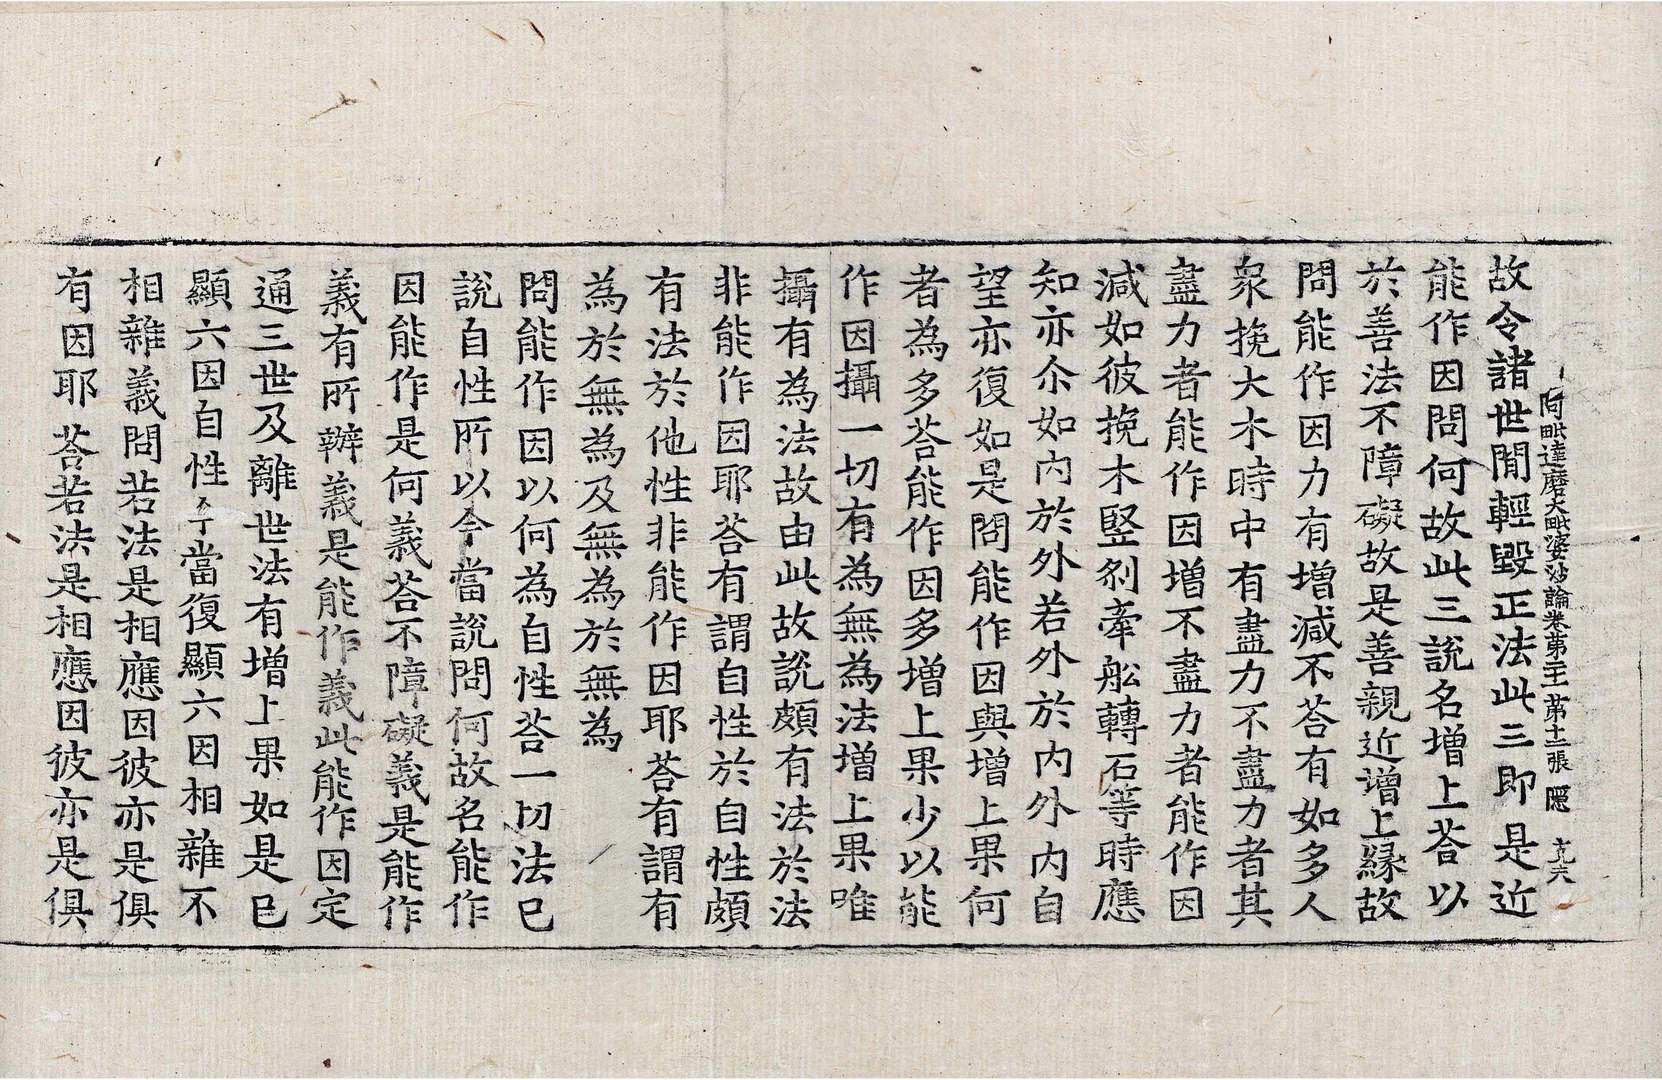 阿毗達磨大毗婆沙論卷第二十一 第十二張 隱
故令諸世間輕毀正法此三即是近
能作因問何故此三說名增上荅以
於善法不障礙故是善親近增上緣故
問能作因力有增減不荅有如多人
衆挽大木時中有盡力不盡力者其
盡力者能作因增不盡力者能作因
減如彼挽木竪刹牽舩轉石等時應
知亦尒如內於外若外於內外內自
望亦復如是問能作因與增上果何
者為多荅能作因多增上果少以能
作因攝一切有為無為法增上果唯
攝有為法故由此故說頗有法於法
非能作因耶荅有謂自性於自性頗
有法於他性非能作因耶荅有謂有
為於無為及無為於無為
問能作因以何為自性荅一切法已
說自性所以今當說問何故名能作
因能作是何義荅不障礙義是能作
義有所辦義是能作義此能作因定
通三世及離世法有增上果如是已
顯六因自性今當復顯六因相雜不
相雜義問若法是相應因彼亦是俱
有因耶荅若法是相應因彼亦是俱